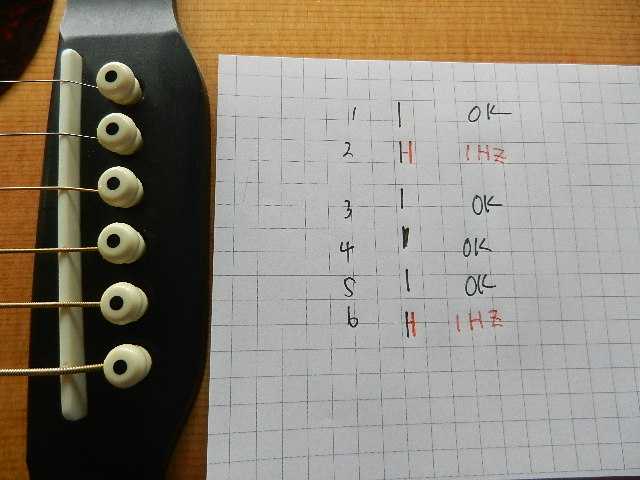 1 | OK
2 H 1HZ
3 | OK
4 | OK
5 | OK
6 H 1HZ